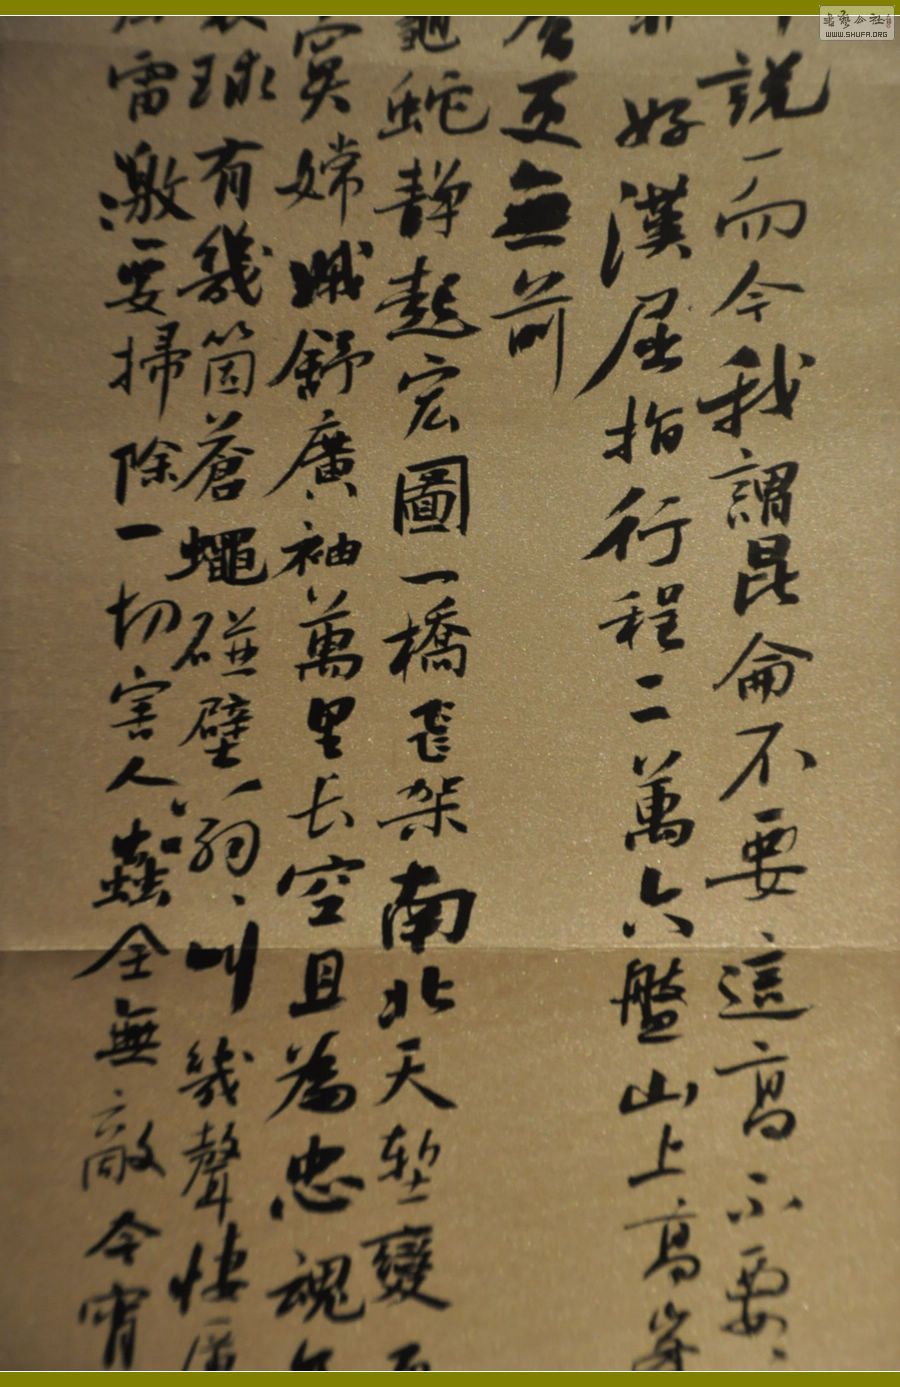 說而今我謂昆侖不要這高不要
好漢屈指行程二萬六盤山上高峯
更無前
龜蛇靜起宏圖一橋飛架南北天塹變
寞嫦娥舒廣袖萬里長空且為忠魂
球有幾箇蒼蠅碰壁嗡〻叫幾聲悽厲
雷激要掃除一切害人蟲全無敵今宵
書藝公社
WWW.SHUFA.ORG